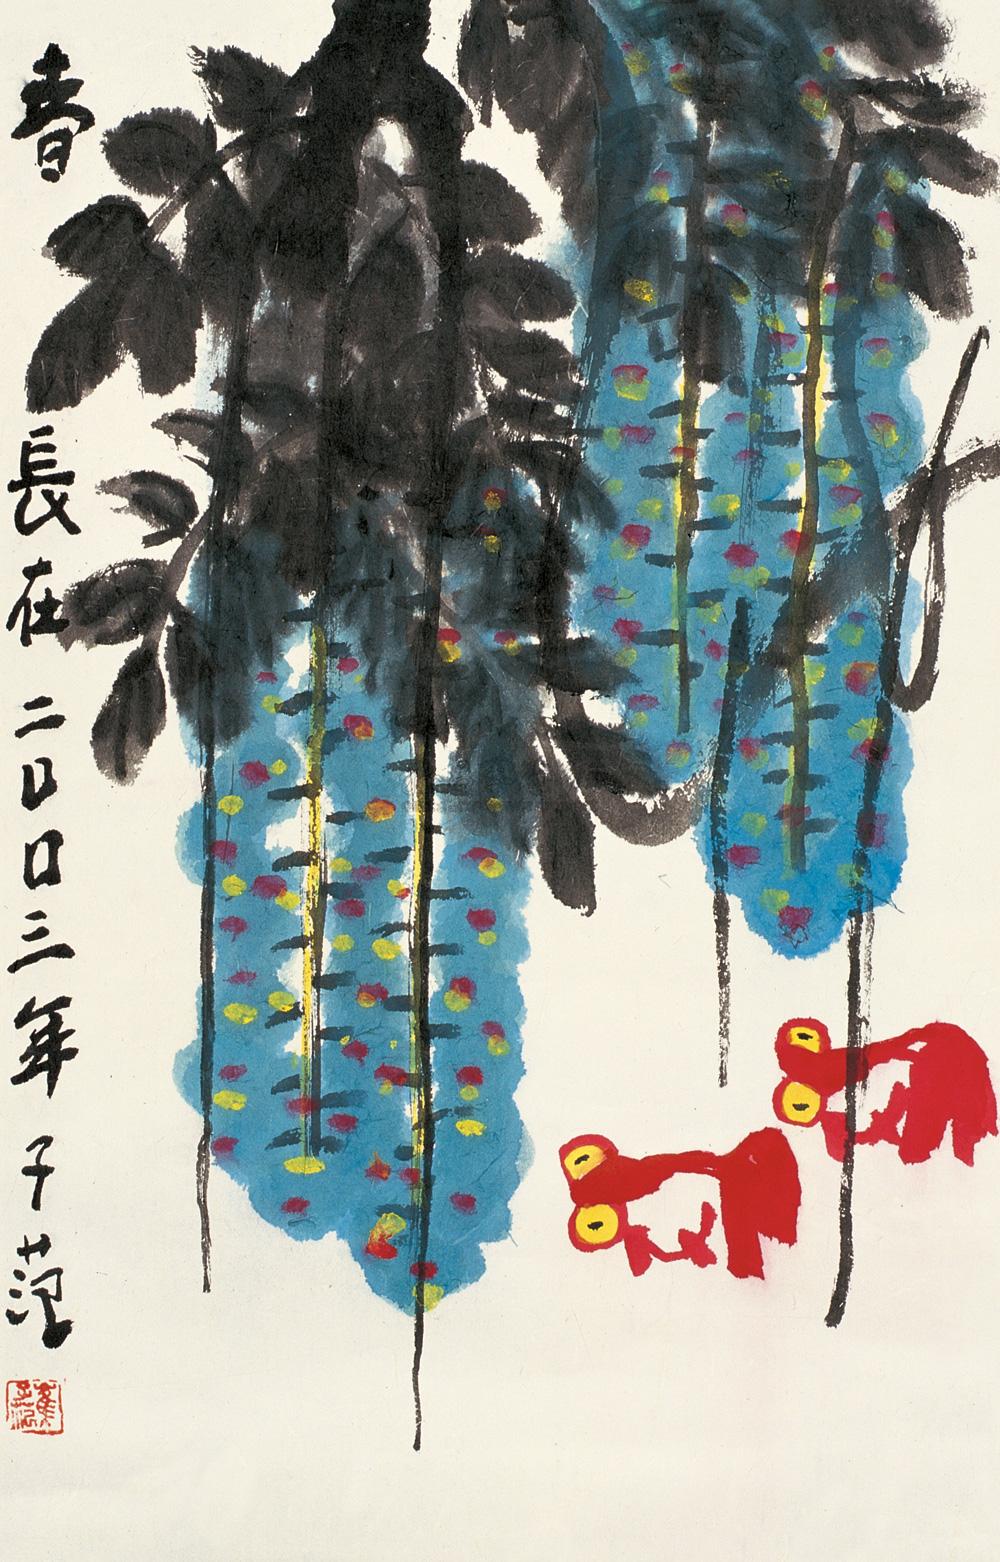 春長在二〇〇三年子范